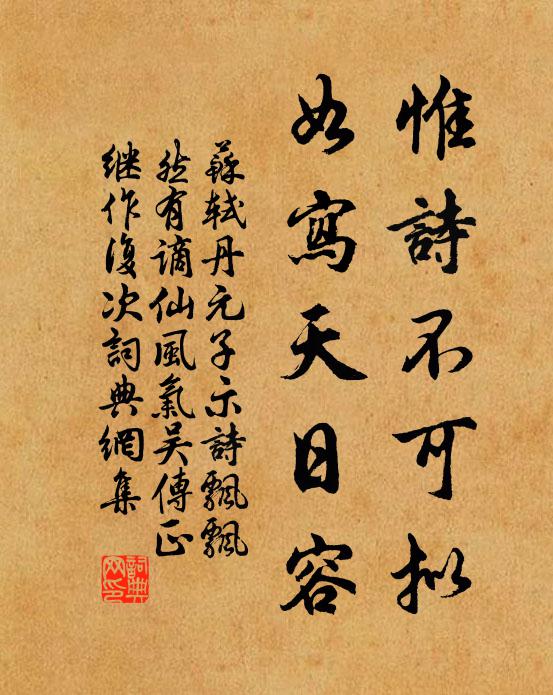 惟詩不可拟
如寫天日容
蘇軾丹元子示詩飄飄
然有谪仙風氣吴傳正
继作復次詞典網集
詞典
网印